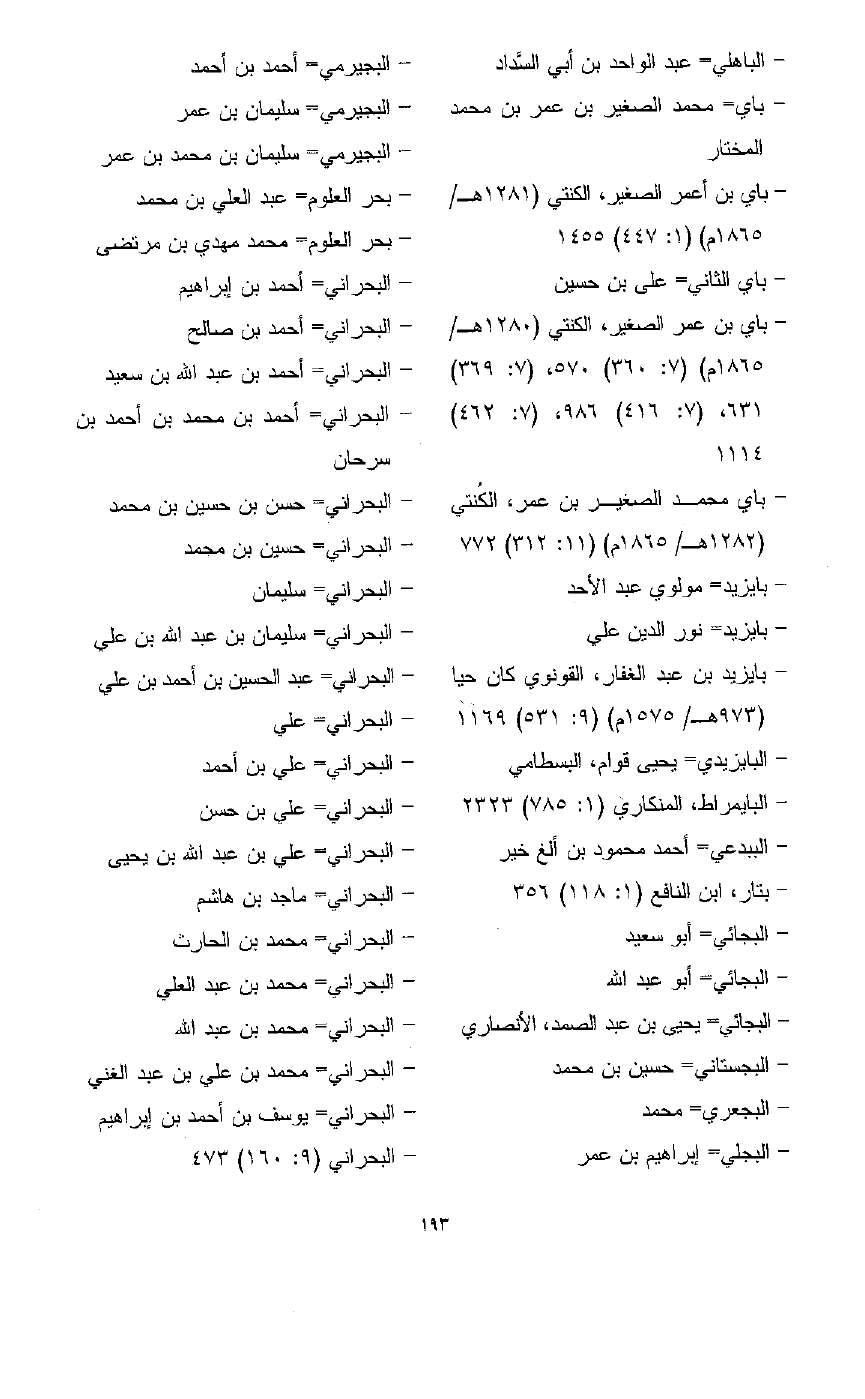 - الباهلي= عبد الواحد بن أبي السَّداد
- باي= محمد الصغير بن عمر بن محمد
المختار
- باي بن أعمر الصغير، الكنتي (١٢٨١هـ/
١٨٦٥م) (١: ٤٤٧) ١٤٥٥
- باي الثاني= على بن حسين
- باي بن عمر الصغير، الكنتي (١٢٨٠هـ/
١٨٦٥م) (٧: ٣٦٠) ٥٧٠، (٧: ٣٦٩)
٦٣١، (٧: ٤١٦) ٩٨٦، (٧: ٤٦٢)
١١١٤
- باي محمد الصغير بن عمر، الكُنتي
(١٢٨٢هـ/ ١٨٦٥م) (١١: ٣١٢) ٧٧٢
- بايزيد= مولوي عبد الأحد
- بايزيد= نور الدين علي
- بايزيد بن عبد الغفار، القونوي كان حيا
(٩٧٣هـ/ ١٥٧٥م) (٩: ٥٣١) ١١٦٩
- البايزيدي= يحيى قوام، البسطامي
- البايمراط، المنكاري (١: ٧٨٥) ٢٣٢٣
- الببدعي= أحمد محمود بن ألغ خير
- بتار، ابن النافع (١: ١١٨) ٣٥٦
- البجائي= أبو سعيد
- البجائي= أبو عبد الله
- البجائي= يحيى بن عبد الصمد، الأنصاري
- البجستاني= حسين بن محمد
- البجعري= محمد
- البجلي= إبراهيم بن عمر
- البجيرمي= أحمد بن أحمد
- البجيرمي= سليمان بن عمر
- البجيرمي= سليمان بن محمد بن عمر
- بحر العلوم= عبد العلي بن محمد
- بحر العلوم= محمد مهدي بن مرتضى
- البحراني= أحمد بن إبراهيم
- البحراني= أحمد بن صالح
- البحراني= أحمد بن عبد الله بن سعيد
- البحراني= أحمد بن محمد بن أحمد بن
سرحان
- البحراني= حسن بن حسين بن محمد
- البحراني= حسين بن محمد
- البحراني= سليمان
- البحراني= سليمان بن عبد الله بن علي
- البحراني= عبد الحسين بن أحمد بن علي
- البحراني= علي
- البحراني= علي بن أحمد
- البحراني= علي بن حسن
- البحراني= علي بن عبد الله بن يحيى
- البحراني= ماجد بن هاشم
- البحراني= محمد بن الحارث
- البحراني= محمد بن عبد العلي
- البحراني= محمد بن عبد الله
- البحراني= محمد بن علي بن عبد الغني
- البحراني= يوسف بن أحمد بن إبراهيم
- البحراني (٩: ١٦٠) ٤٧٣
١٩٣